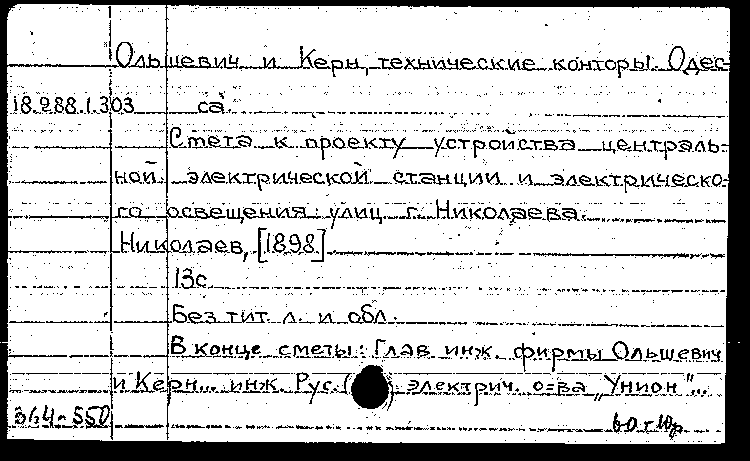 Ольшевич и Керн, технические конторы. Одес-
18.288.1.303 са.
Смета к проекту устройства централь-
ной электрической станции и электрическо-
го освещения улиц г. Николаева.
Николаев, [1898].
13с.
Без тит. л. и обл.
В конце сметы: Глав. инж. фирмы Ольшевич
и Керн... инж. Рус. электрич. о-ва „Унион"...
364-550